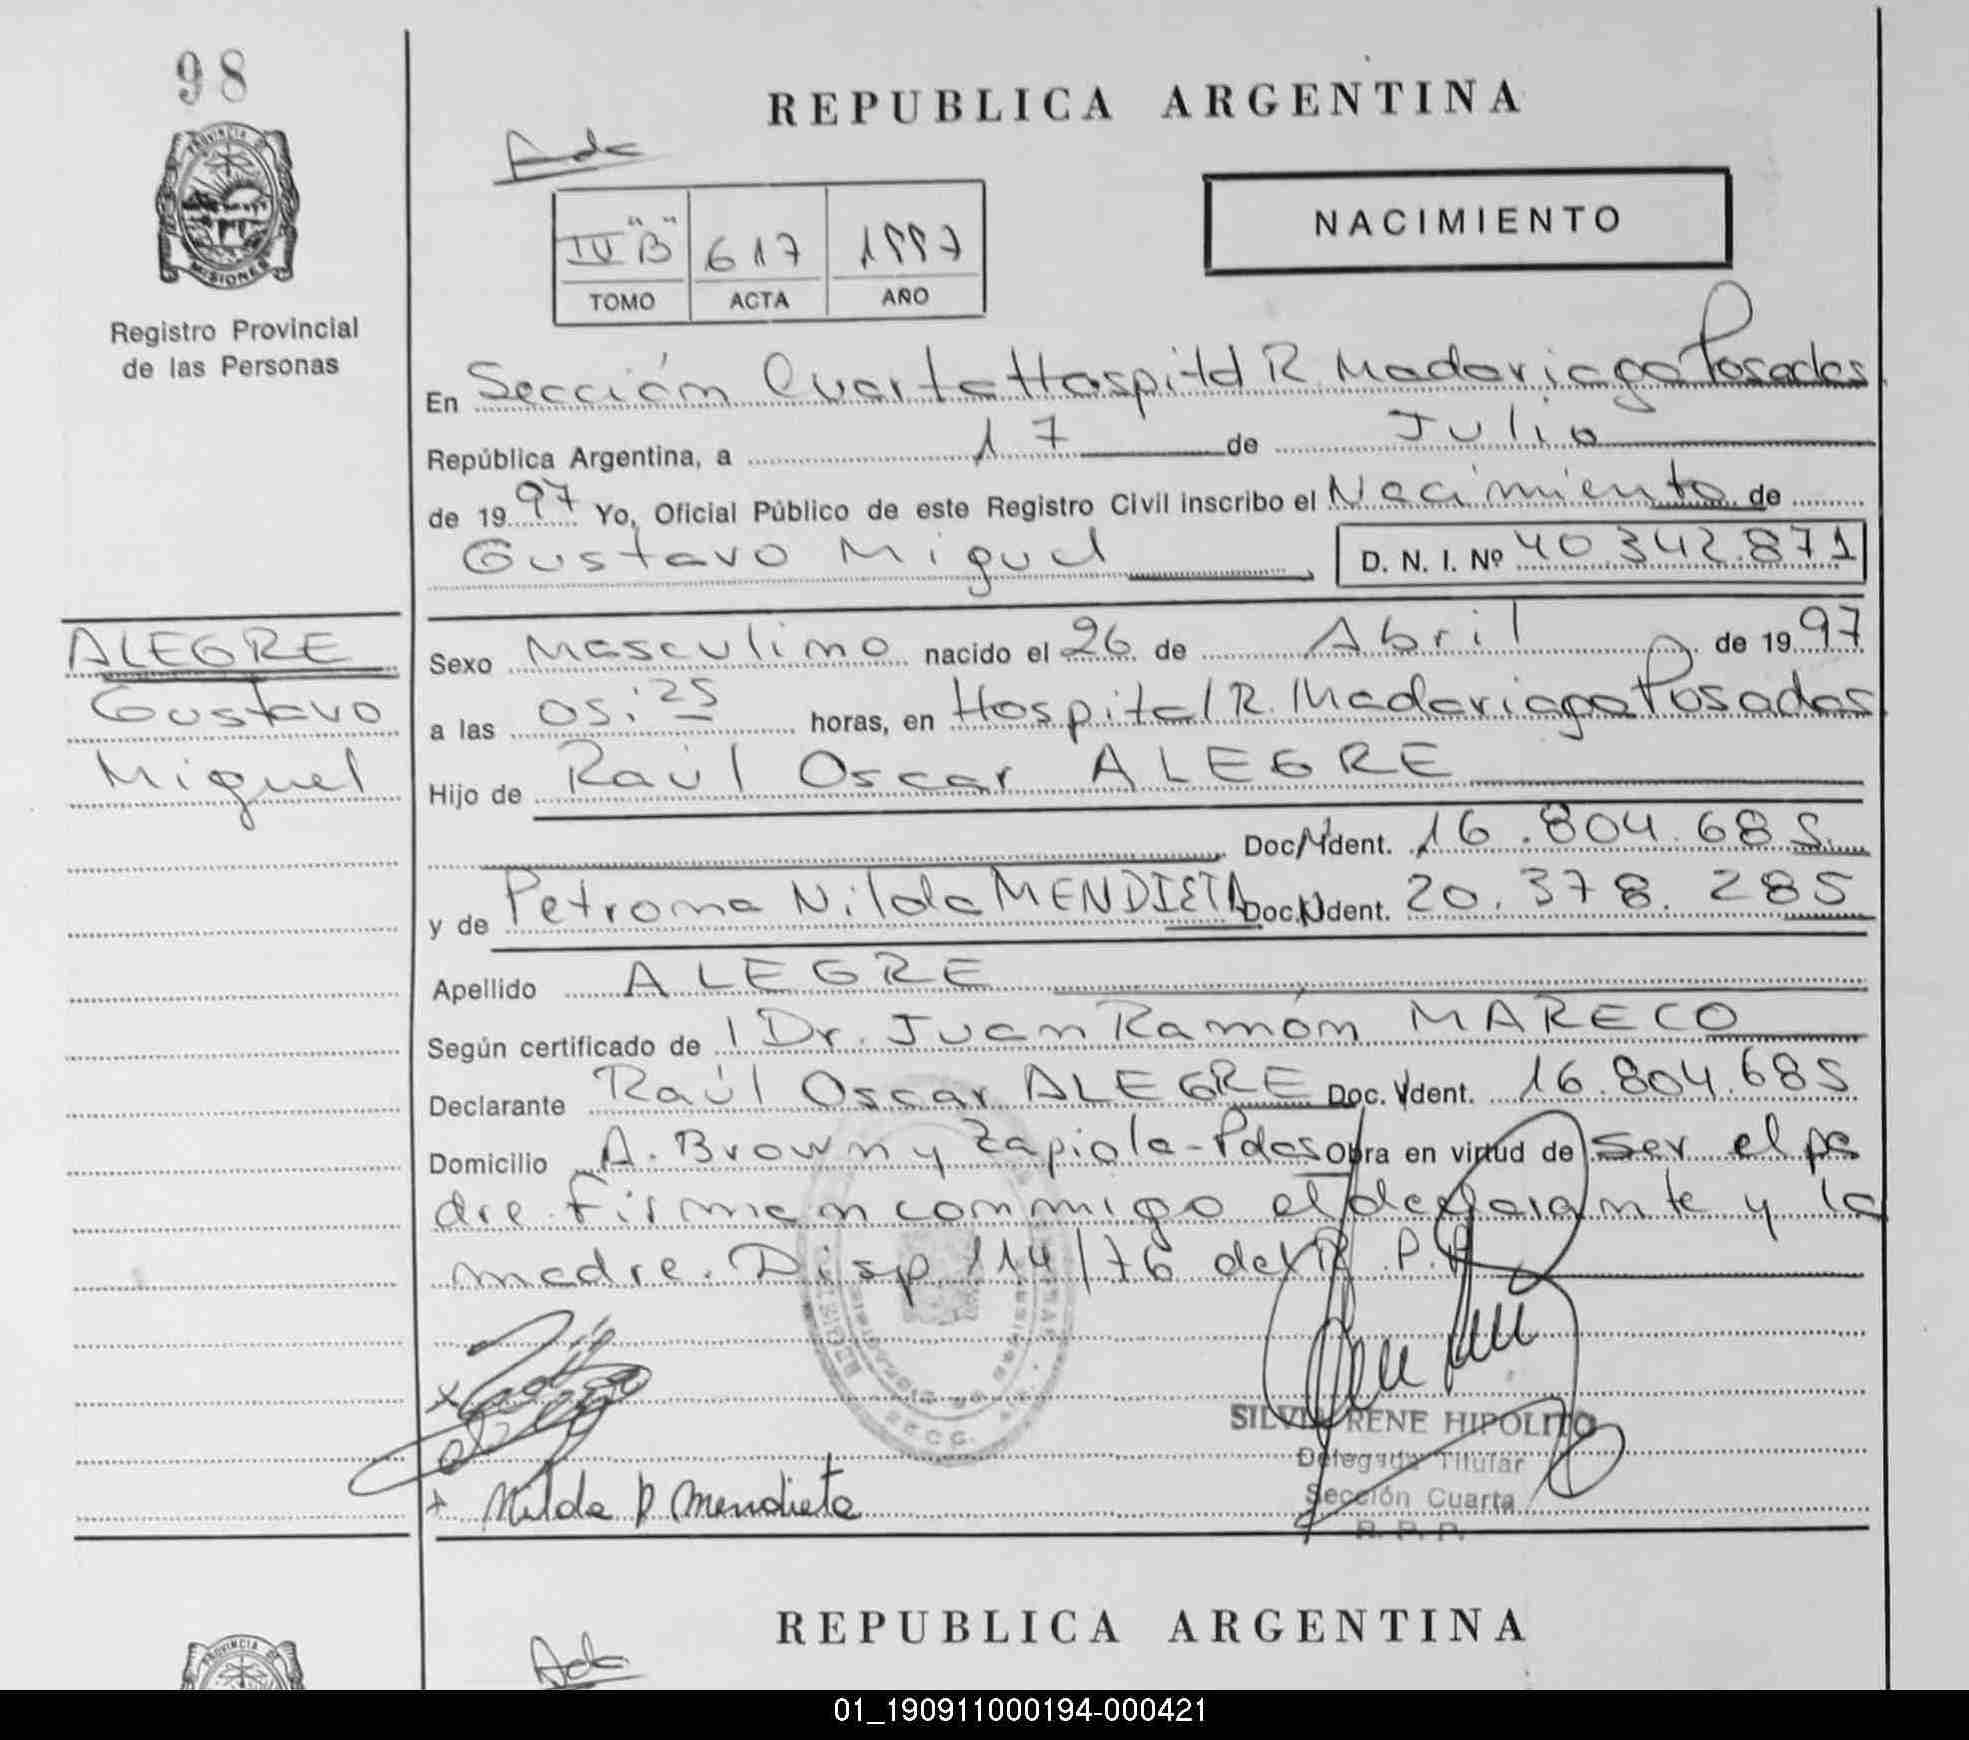 98
REPUBLICA ARGENTINA
PROVINCIA DE
MISIONES
Registro Provincial
de las Personas
NACIMIENTO
IV "B" 617 1997
TOMO ACTA AÑO
En Sección Cuarta Hospital R. Madariaga Posadas
República Argentina, a 17 de Julio
de 1997 Yo, Oficial Público de este Registro Civil inscribo el Nacimiento de
Gustavo Miguel D. N. I. Nº 40.342.871
ALEGRE
Gustavo
Miguel
Sexo Masculino nacido el 26 de Abril de 1997
a las 05:25 horas, en Hospital R. Madariaga Posadas
Hijo de Raúl Oscar ALEGRE
Doc. Ident. 16.804.685
y de Petrona Nilda MENDIETA Doc. Ident. 20.378.285
Apellido ALEGRE
Según certificado de l Dr. Juan Ramón MARECO
Declarante Raúl Oscar ALEGRE Doc. Ident. 16.804.685
Domicilio A. Brown y Zapiola - Pdas Obra en virtud de ser el pa
dre. Firman conmigo el declarante y la
madre. Disp. 114/76 del R. P. P.
x
x Nilda P Mendieta
SILVIA RENE HIPOLITO
Delegada Titular
Sección Cuarta
R. P. P.
REPUBLICA ARGENTINA
PROVINCIA DE
01_190911000194-000421